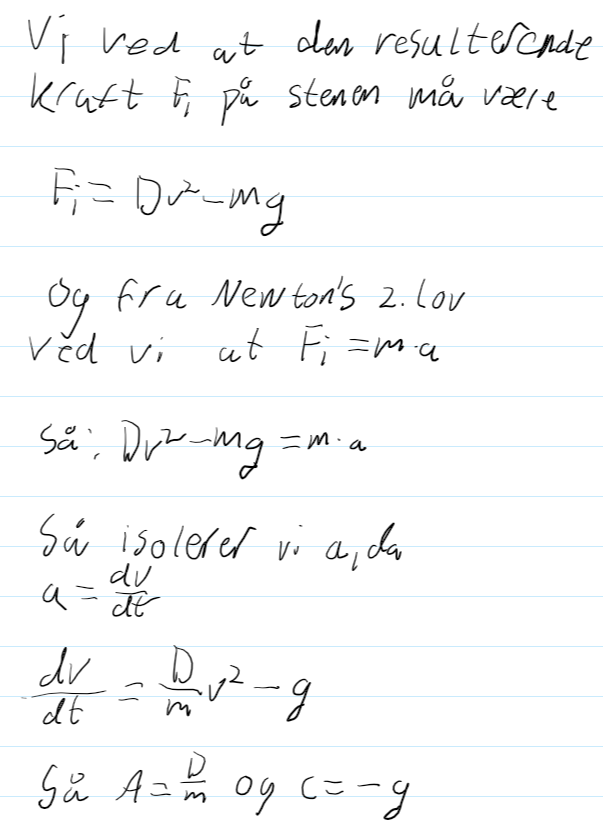 Vi ved at den resulterende
kraft Fᵢ på stenen må være
Fᵢ = Dv² - mg
Og fra Newton's 2. lov
ved vi at Fᵢ = m·a
Så: Dv² - mg = m·a
Så isolerer vi a, da
a = dv/dt
dv/dt = D/m v² - g
Så A = D/m og C = -g